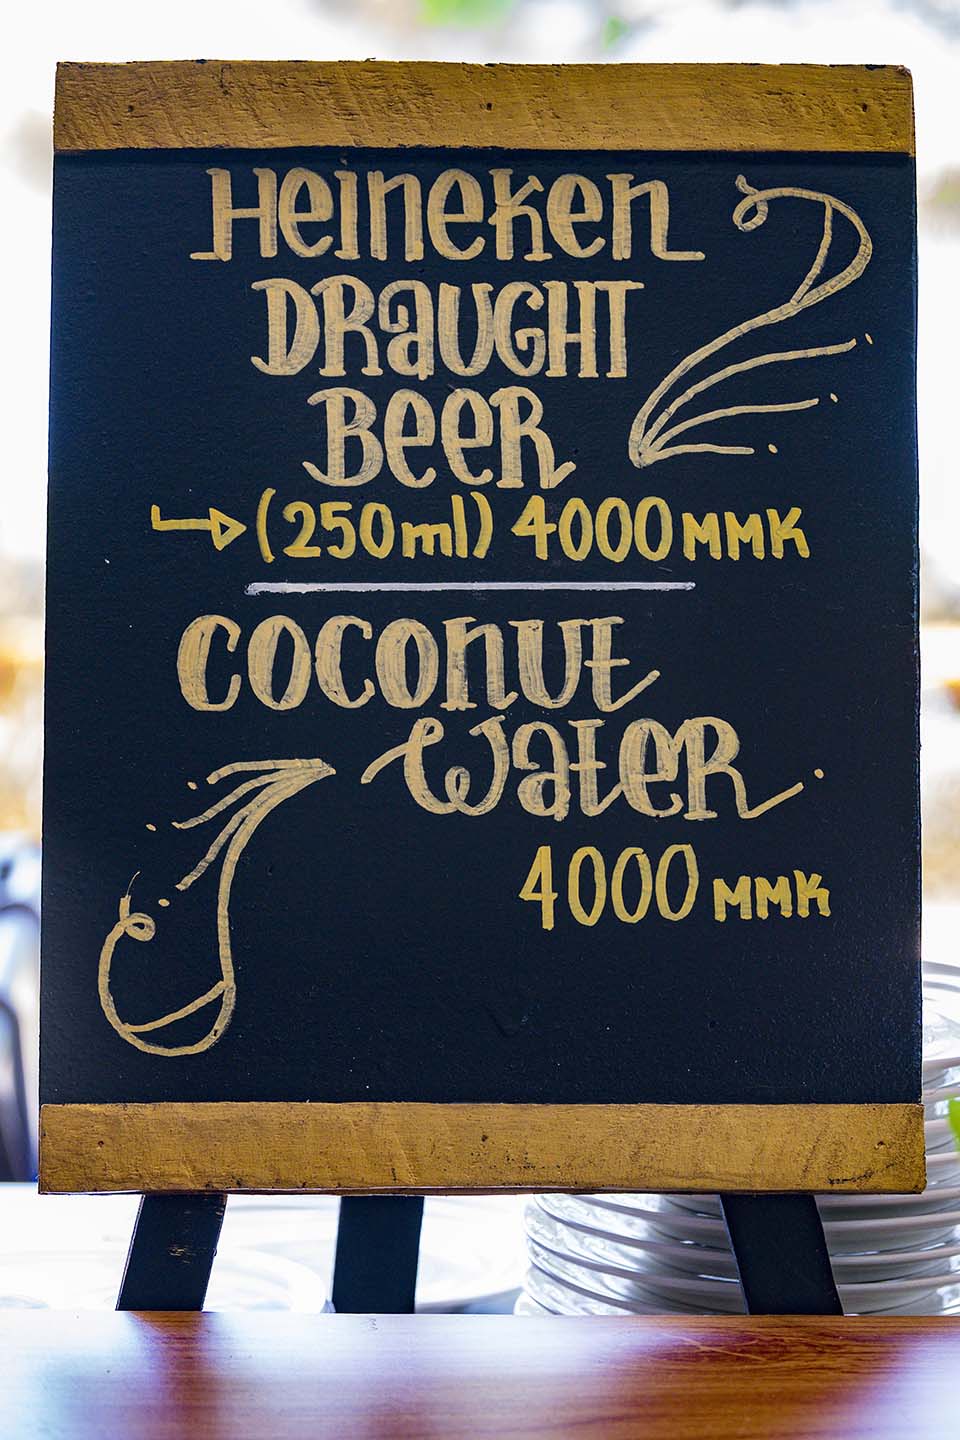 Heineken
DRaUGHT
BeeR
(250ml) 4000 MMK
COCOnUt
WateR
4000 MMK